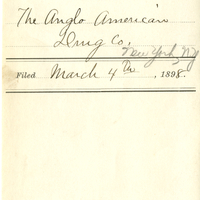 The Anglo American
Drug Co.
New York, NY
Filed March 4th, 1898.